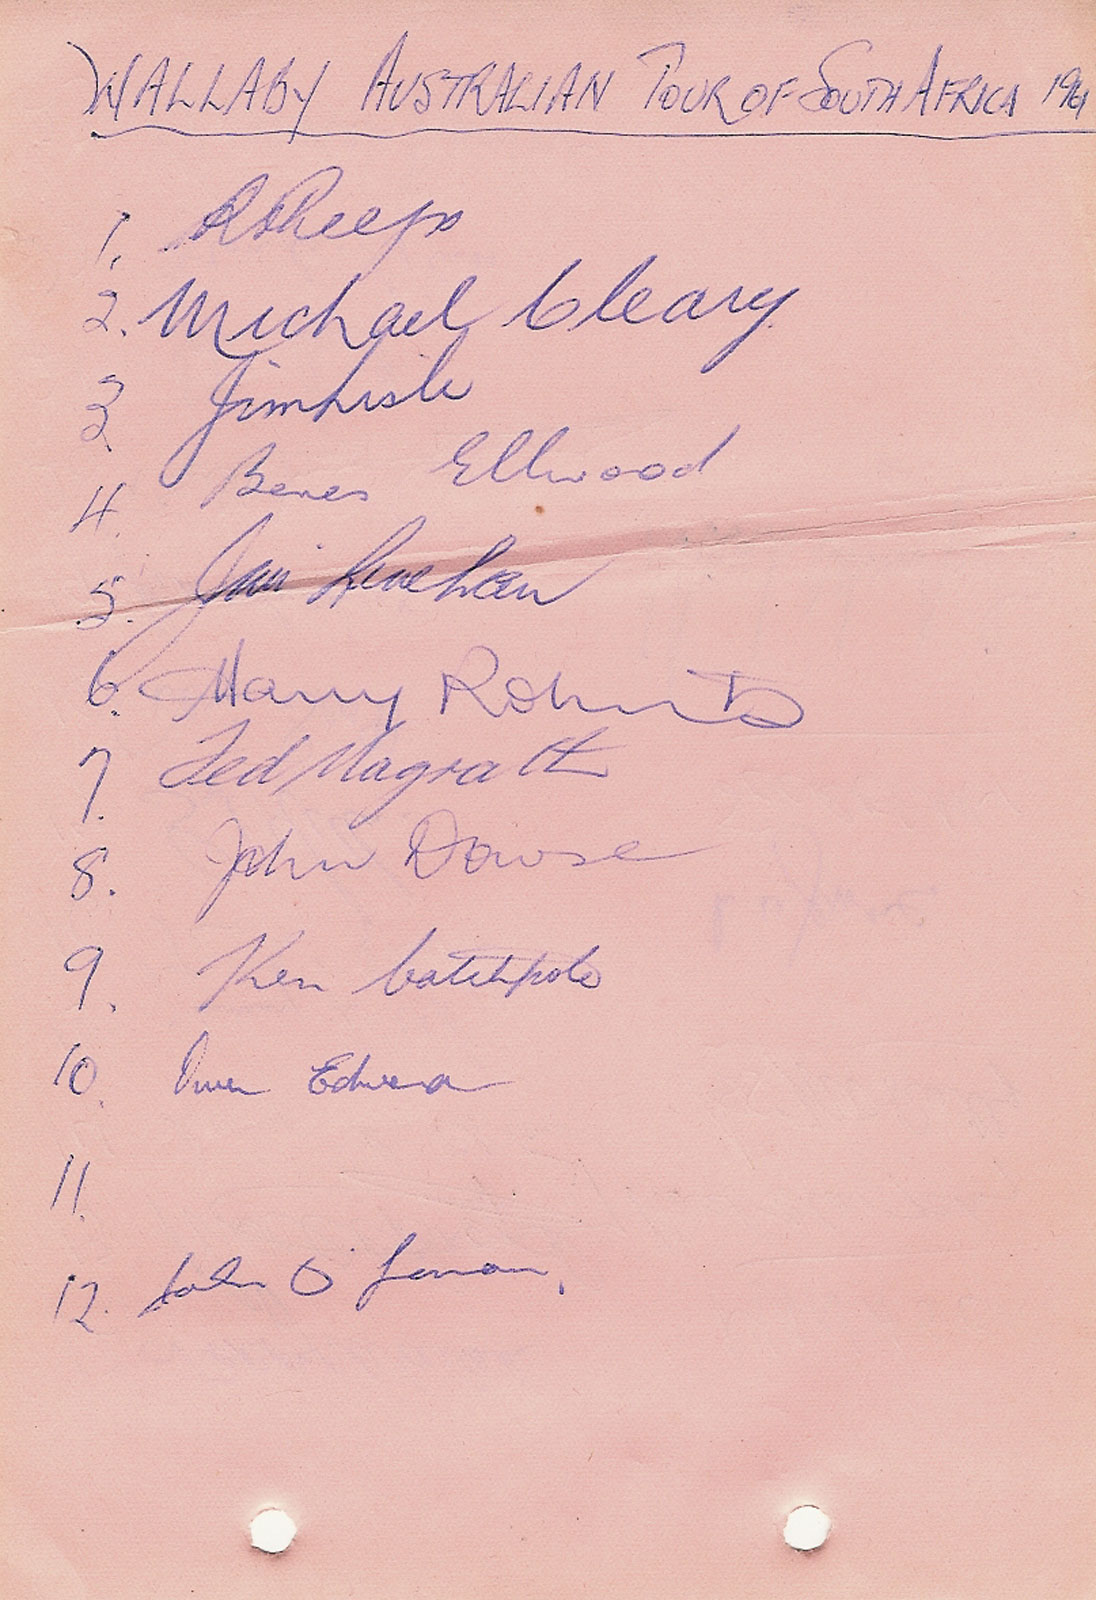 WALLABY AUSTRALIAN TOUR OF SOUTH AFRICA 1961
1. R Phelps
2. Michael Cleary
3 Jim Lisle
4. Beres Ellwood
5. Jim Lenehan
6. Harry Roberts
7. Ted Magrath
8. John Dowse
9. Ken Catchpole
10. Owen Edwards
11.
12. John O'Gorman.